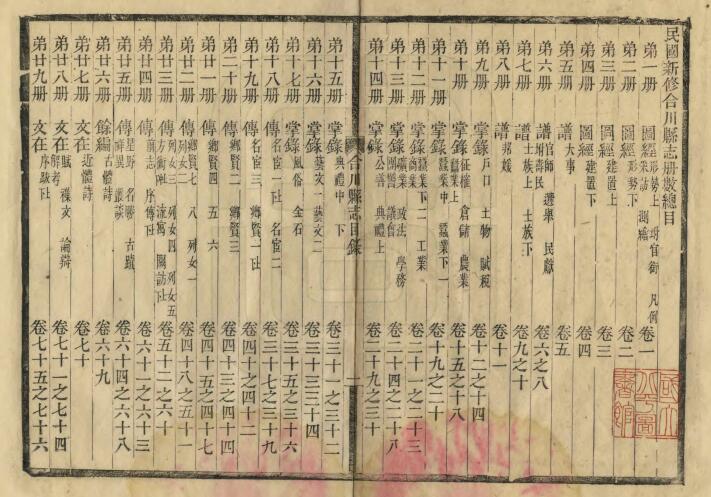 民國新修合川縣志册數總目
弟一册 圖經 形勢上 坿官銜 凡例 采訪 測繪 卷一
弟二册 圖經 形勢下 卷二
弟三册 圖經 建置上 卷三
弟四册 圖經 建置下 卷四
弟五册 譜 大事 卷五
弟六册 譜 官師 選舉 民獻 坿壽民 卷六之八
弟七册 譜 士族上 士族下 卷九之十
弟八册 譜 卷十一
弟九册 掌錄 戶口 土物 賦稅 卷十二之十四
弟十册 掌錄 征榷 倉儲 農業 蠶業上 卷十五之十八
弟十一册 掌錄 蠶業中 蠶業下一 卷十九之二十
弟十二册 掌錄 蠶業下二 工業 商業 卷二十一之二十三
弟十三册 掌錄 礦業 政法 學務 團練 議會 卷二十四之二十八
弟十四册 掌錄 公善 典禮上 卷二十九之三十
合川縣志目錄
弟十五册 掌錄 典禮中 下 卷三十一之三十二
弟十六册 掌錄 藝文一 藝文二 卷三十三之三十四
弟十七册 掌錄 風俗 金石 卷三十五之三十六
弟十八册 傳 名宦一 名宦二 卷三十七之三十九
弟十九册 傳 名宦三 鄉賢一 卷四十之四十二
弟二十册 傳 鄉賢二 鄉賢三 卷四十三之四十四
弟廿一册 傳 鄉賢四 五 六 卷四十五之四十七
弟廿二册 傳 鄉賢七 八 列女一 列女二 卷四十八之五十一
弟廿三册 傳 列女三 列女四 列女五 方術 流寓 卷五十二之六十
弟廿四册 傳 前志 序傳 卷六十一之六十三
弟廿五册 餘編 星野 名勝 古蹟 祥異 叢談 卷六十四之六十八
弟廿六册 文在 古體詩 卷六十九
弟廿七册 文在 近體詩 卷七十
弟廿八册 文在 賦 襍文 論辯 解考 卷七十一之七十四
弟廿九册 文在 序 卷七十五之七十六